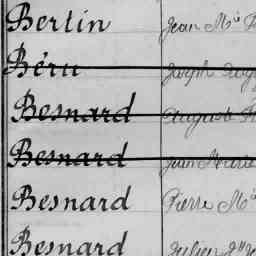 Bertin Jean Mie
Béru Joseph
Besnard Auguste
Besnard Jean Marie
Besnard Pierre Mie
Besnard Julien